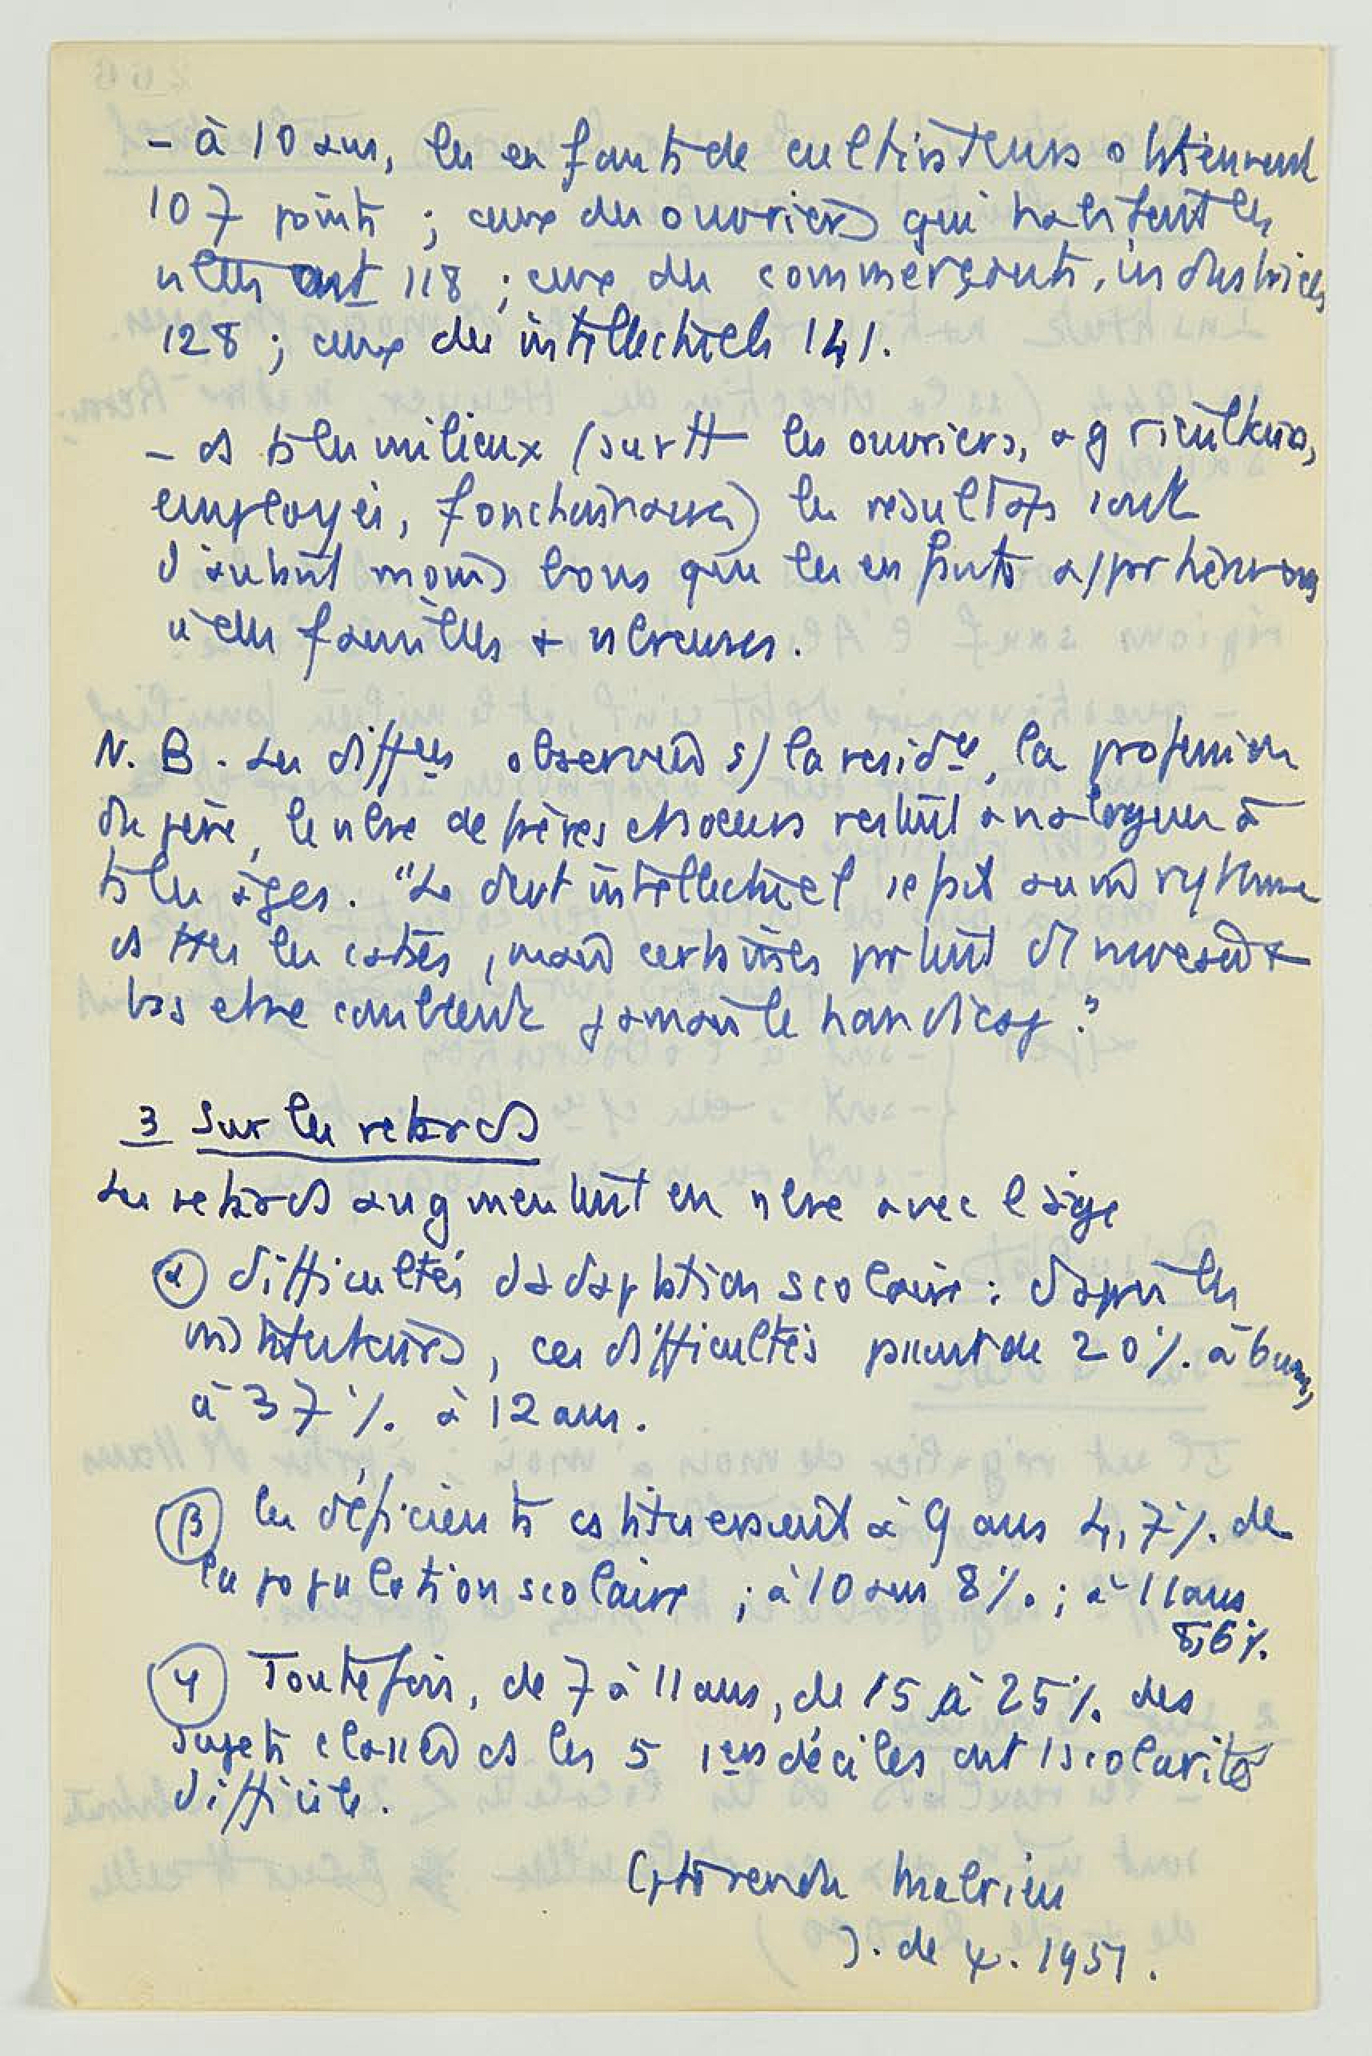 - à 10 ans, les enfants de cultivateurs obtiennent
107 points ; ceux des ouvriers qui habitent les
villes ont 118 ; ceux des commerçants, industriels
128 ; ceux des intellectuels 141.
- ds ts les milieux (surtt les ouvriers, agriculteurs,
employés, fonctionnaires) les résultats sont
d'autant moins bons que les enfants appartiennent
à des familles + nbreuses.
N.B. Les difféces observées s/ la residce, la profession
du père, le nbre de frères et soeurs restent analogues à
ts les âges. "Le dvt intellectuel se fait au m̂ rythme
ds ttes les catées, mais certaines partent d'1 niveau +
bas et ne comblent jamais le handicap."
3 Sur les retards
Les retards augmentent en nbre avec l'âge
α difficultés d'adaptation scolaire : d'après les
instituteurs, ces difficultés passent de 20%. à 6 ans,
à 37 %. à 12 ans.
β les déficients constitueraient à 9 ans 4,7%. de
la population scolaire ; à 10 ans 8%. ; à 11 ans
8,6%.
γ Toutefois, de 7 à 11 ans, de 15 à 25%. des
sujets classés ds les 5 1ers déciles ont 1 scolarité
difficile.
Cpte rendu Malrieu
J. de ψ. 1951.